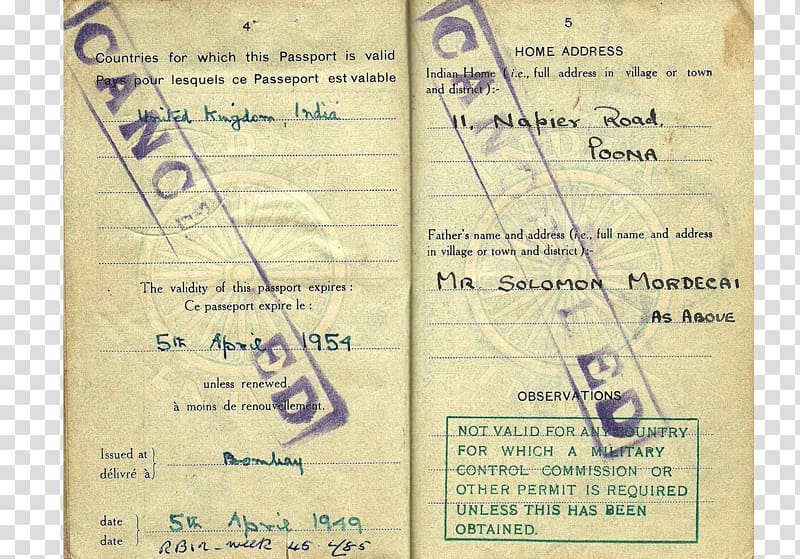 4
Countries for which this Passport is valid
Pays pour lesquels ce Passeport est valable
United Kingdom, India
The validity of this passport expires :
Ce passeport expire le :
5th April 1954
unless renewed.
à moins de renouvellement.
Issued at
délivré à
Bombay
date
date
5th April 1949
CANCELLED
5
HOME ADDRESS
Indian Home (i.e., full address in village or town
and district ):-
11, Napier Road,
POONA
Father's name and address (i.e., full name and address
in village or town and district ):-
MR SOLOMON MORDECAI
AS ABOVE
OBSERVATIONS
NOT VALID FOR ANY COUNTRY
FOR WHICH A MILITARY
CONTROL COMMISSION OR
OTHER PERMIT IS REQUIRED
UNLESS THIS HAS BEEN
OBTAINED.
CANCELLED